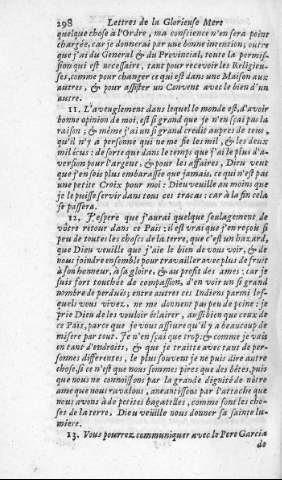 298 Lettres de la Glorieuse Mere
quelque chose à l'Ordre, ma conscience n'en sera point
chargée, car je donnerai par une bonne intention; outre
que j'ai du General & du Provincial, toute la permis-
sion qui est necessaire, tant pour recevoir les Religieu-
ses, comme pour changer ce qui est dans une Maison aux
autres, & pour assister un Convent avec le bien d'un
autre.
11. L'aveuglement dans lequel le monde est, d'avoir
bonne opinion de moi, est si grand que je n'en sçai pas la
raison; & même j'ai un si grand credit aupres de tous,
qu'il n'y a personne qui ne me fie mil, & les deux
mil écus: de sorte que dans le temps que j'ai le plus d'a-
version pour l'argent, & pour les affaires, Dieu veut
que j'en sois plus embarassée que jamais, ce qui n'est pas
une petite Croix pour moi: Dieu veuille au moins que
je le puisse servir dans tous ces tracas: car à la fin cela
se passera.
12. J'espere que j'aurai quelque soulagement de
vôtre retour dans ce Païs: il est vrai que j'en reçoie si
peu de toutes les choses de la terre, que c'est un hazard,
que Dieu veuille que j'aie le bien de vous voir, & de
nous joindre ensemble pour travailler avec plus de fruit
à son honneur, à sa gloire, & au profit des ames: car je
suis fort touchée de compassion, d'en voir un si grand
nombre de perduës; entre autres ces Indiens parmi les-
quels vous vivez, ne me donnent pas peu de peine: je
prie Dieu de les vouloir éclairer, aussi bien que ceux de
ce Païs, parce que je vous assure qu'il y a beaucoup de
misere par tout. Je n'en sçai que trop: & comme je vais
en tant d'endroits, & que je traitte avec tant de per-
sonnes differentes, le plus souvent je ne puis dire autre
chose, si ce n'est que nous sommes pires que des bêtes, puis
que nous ne connoissons par la grande dignité de nôtre
ame que nous ravalons, aneantissons par l'attache que
nous avons à de petites bagatelles, comme sont les cho-
ses de la terre. Dieu veüille nous donner sa sainte lu-
miere.
13. Vous pourrez communiquer avec le Pere Garcia
de